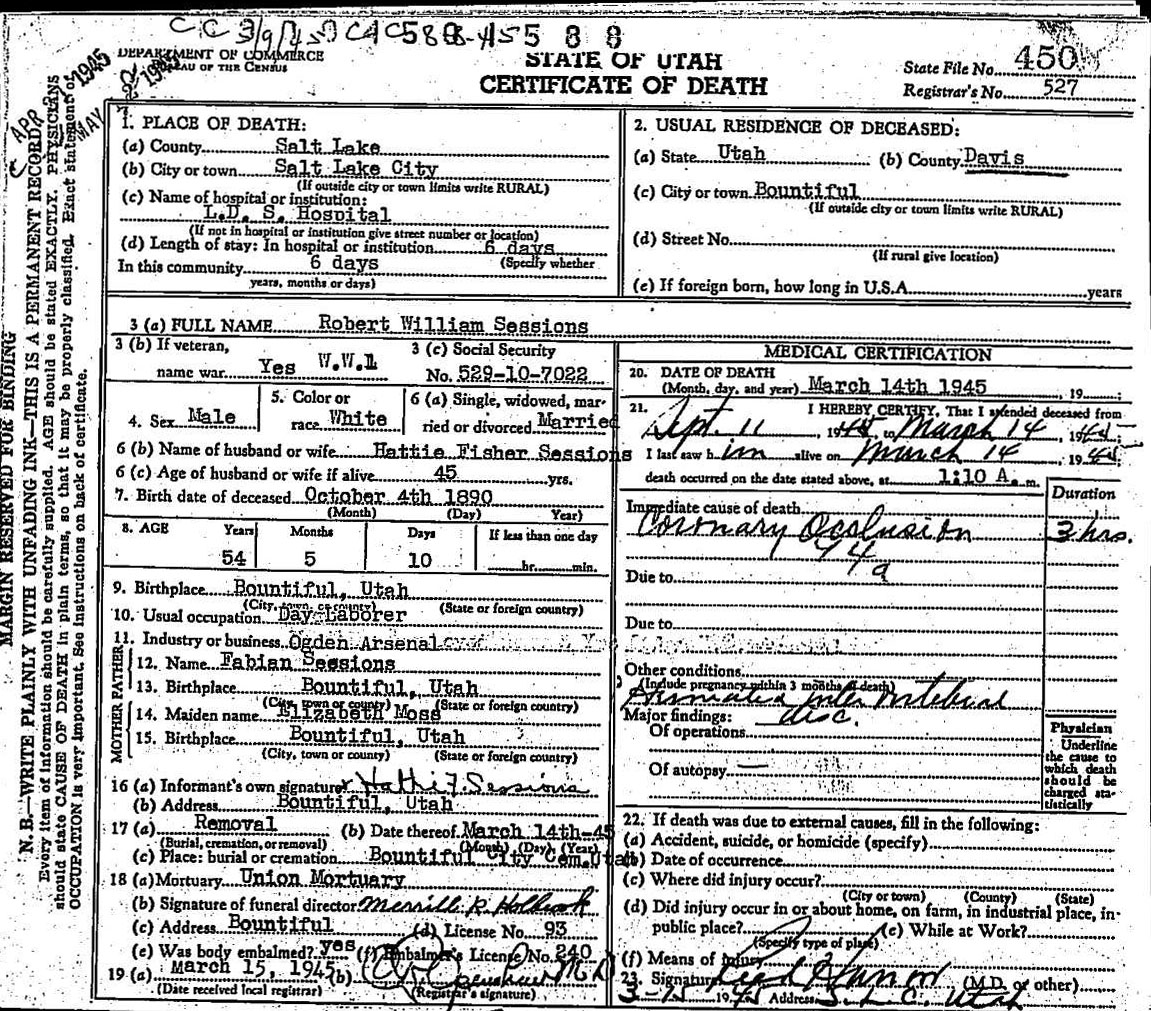 CC 3/9/45 CAC588-45 5 8 8
DEPARTMENT OF COMMERCE
BUREAU OF THE CENSUS
STATE OF UTAH
CERTIFICATE OF DEATH
State File No. 450
Registrar's No. 527
APR 1945
MAY 1945
MARGIN RESERVED FOR BINDING
N. B.—WRITE PLAINLY WITH UNFADING INK—THIS IS A PERMANENT RECORD.
Every item of information should be carefully supplied. AGE should be stated EXACTLY. PHYSICIANS
should state CAUSE OF DEATH in plain terms, so that it may be properly classified. Exact statement of
OCCUPATION is very important. See instructions on back of certificate.
1. PLACE OF DEATH:
(a) County Salt Lake
(b) City or town Salt Lake City
(If outside city or town limits write RURAL)
(c) Name of hospital or institution:
L.D. S. Hospital
(If not in hospital or institution give street number or location)
(d) Length of stay: In hospital or institution 6 days
In this community 6 days (Specify whether
years, months or days)
2. USUAL RESIDENCE OF DECEASED:
(a) State Utah (b) County Davis
(c) City or town Bountiful
(If outside city or town limits write RURAL)
(d) Street No.
(If rural give location)
(e) If foreign born, how long in U.S.A. years
3 (a) FULL NAME Robert William Sessions
3 (b) If veteran,
name war Yes W.W.1
3 (c) Social Security
No. 529-10-7022
4. Sex Male
5. Color or
race White
6 (a) Single, widowed, mar-
ried or divorced Married
6 (b) Name of husband or wife Hattie Fisher Sessions
6 (c) Age of husband or wife if alive 45 yrs.
7. Birth date of deceased October 4th 1890
(Month) (Day) Year)
8. AGE Years Months Days If less than one day
54 5 10 hr. min.
9. Birthplace Bountiful, Utah
(City, town, or county) (State or foreign country)
10. Usual occupation Day Laborer
11. Industry or business Ogden Arsenal
FATHER
12. Name Fabian Sessions
13. Birthplace Bountiful, Utah
(City, town or county) (State or foreign country)
MOTHER
14. Maiden name Elizabeth Moss
15. Birthplace Bountiful, Utah
(City, town or county) (State or foreign country)
16 (a) Informant's own signature x Hattie F. Sessions
(b) Address Bountiful, Utah
17 (a) Removal (b) Date thereof March 14th-45
(Burial, cremation, or removal) (Month) (Day) (Year)
(c) Place: burial or cremation Bountiful City Cem. Utah
18 (a) Mortuary Union Mortuary
(b) Signature of funeral director Merrill R. Holbrook
(c) Address Bountiful (d) License No. 93
(e) Was body embalmed? yes (f) Embalmer's License No. 240
19 (a) March 15, 1945 (b) M D
(Date received local registrar) (Registrar's signature)
MEDICAL CERTIFICATION
20. DATE OF DEATH
(Month, day, and year) March 14th 1945 , 19 ;
21. I HEREBY CERTIFY, That I attended deceased from
Sept. 11 , 1945 to March 14 , 1945
I last saw h im alive on March 14 , 1945;
death occurred on the date stated above, at 1:10 A. m.
Duration
Immediate cause of death
Coronary Occlusion 3 hrs.
94a
Due to
Due to
Other conditions
(Include pregnancy within 3 months of death)
Herniated inter vertebral
disc.
Major findings:
Of operations
Of autopsy —
Physician
Underline
the cause to
which death
should be
charged sta-
tistically
22. If death was due to external causes, fill in the following:
(a) Accident, suicide, or homicide (specify)
(b) Date of occurrence
(c) Where did injury occur?
(City or town) (County) (State)
(d) Did injury occur in or about home, on farm, in industrial place, in-
public place? (e) While at Work?
(Specify type of place)
(f) Means of injury
23. Signature (M.D. or other)
3-15 1945 Address S. L. C. Utah